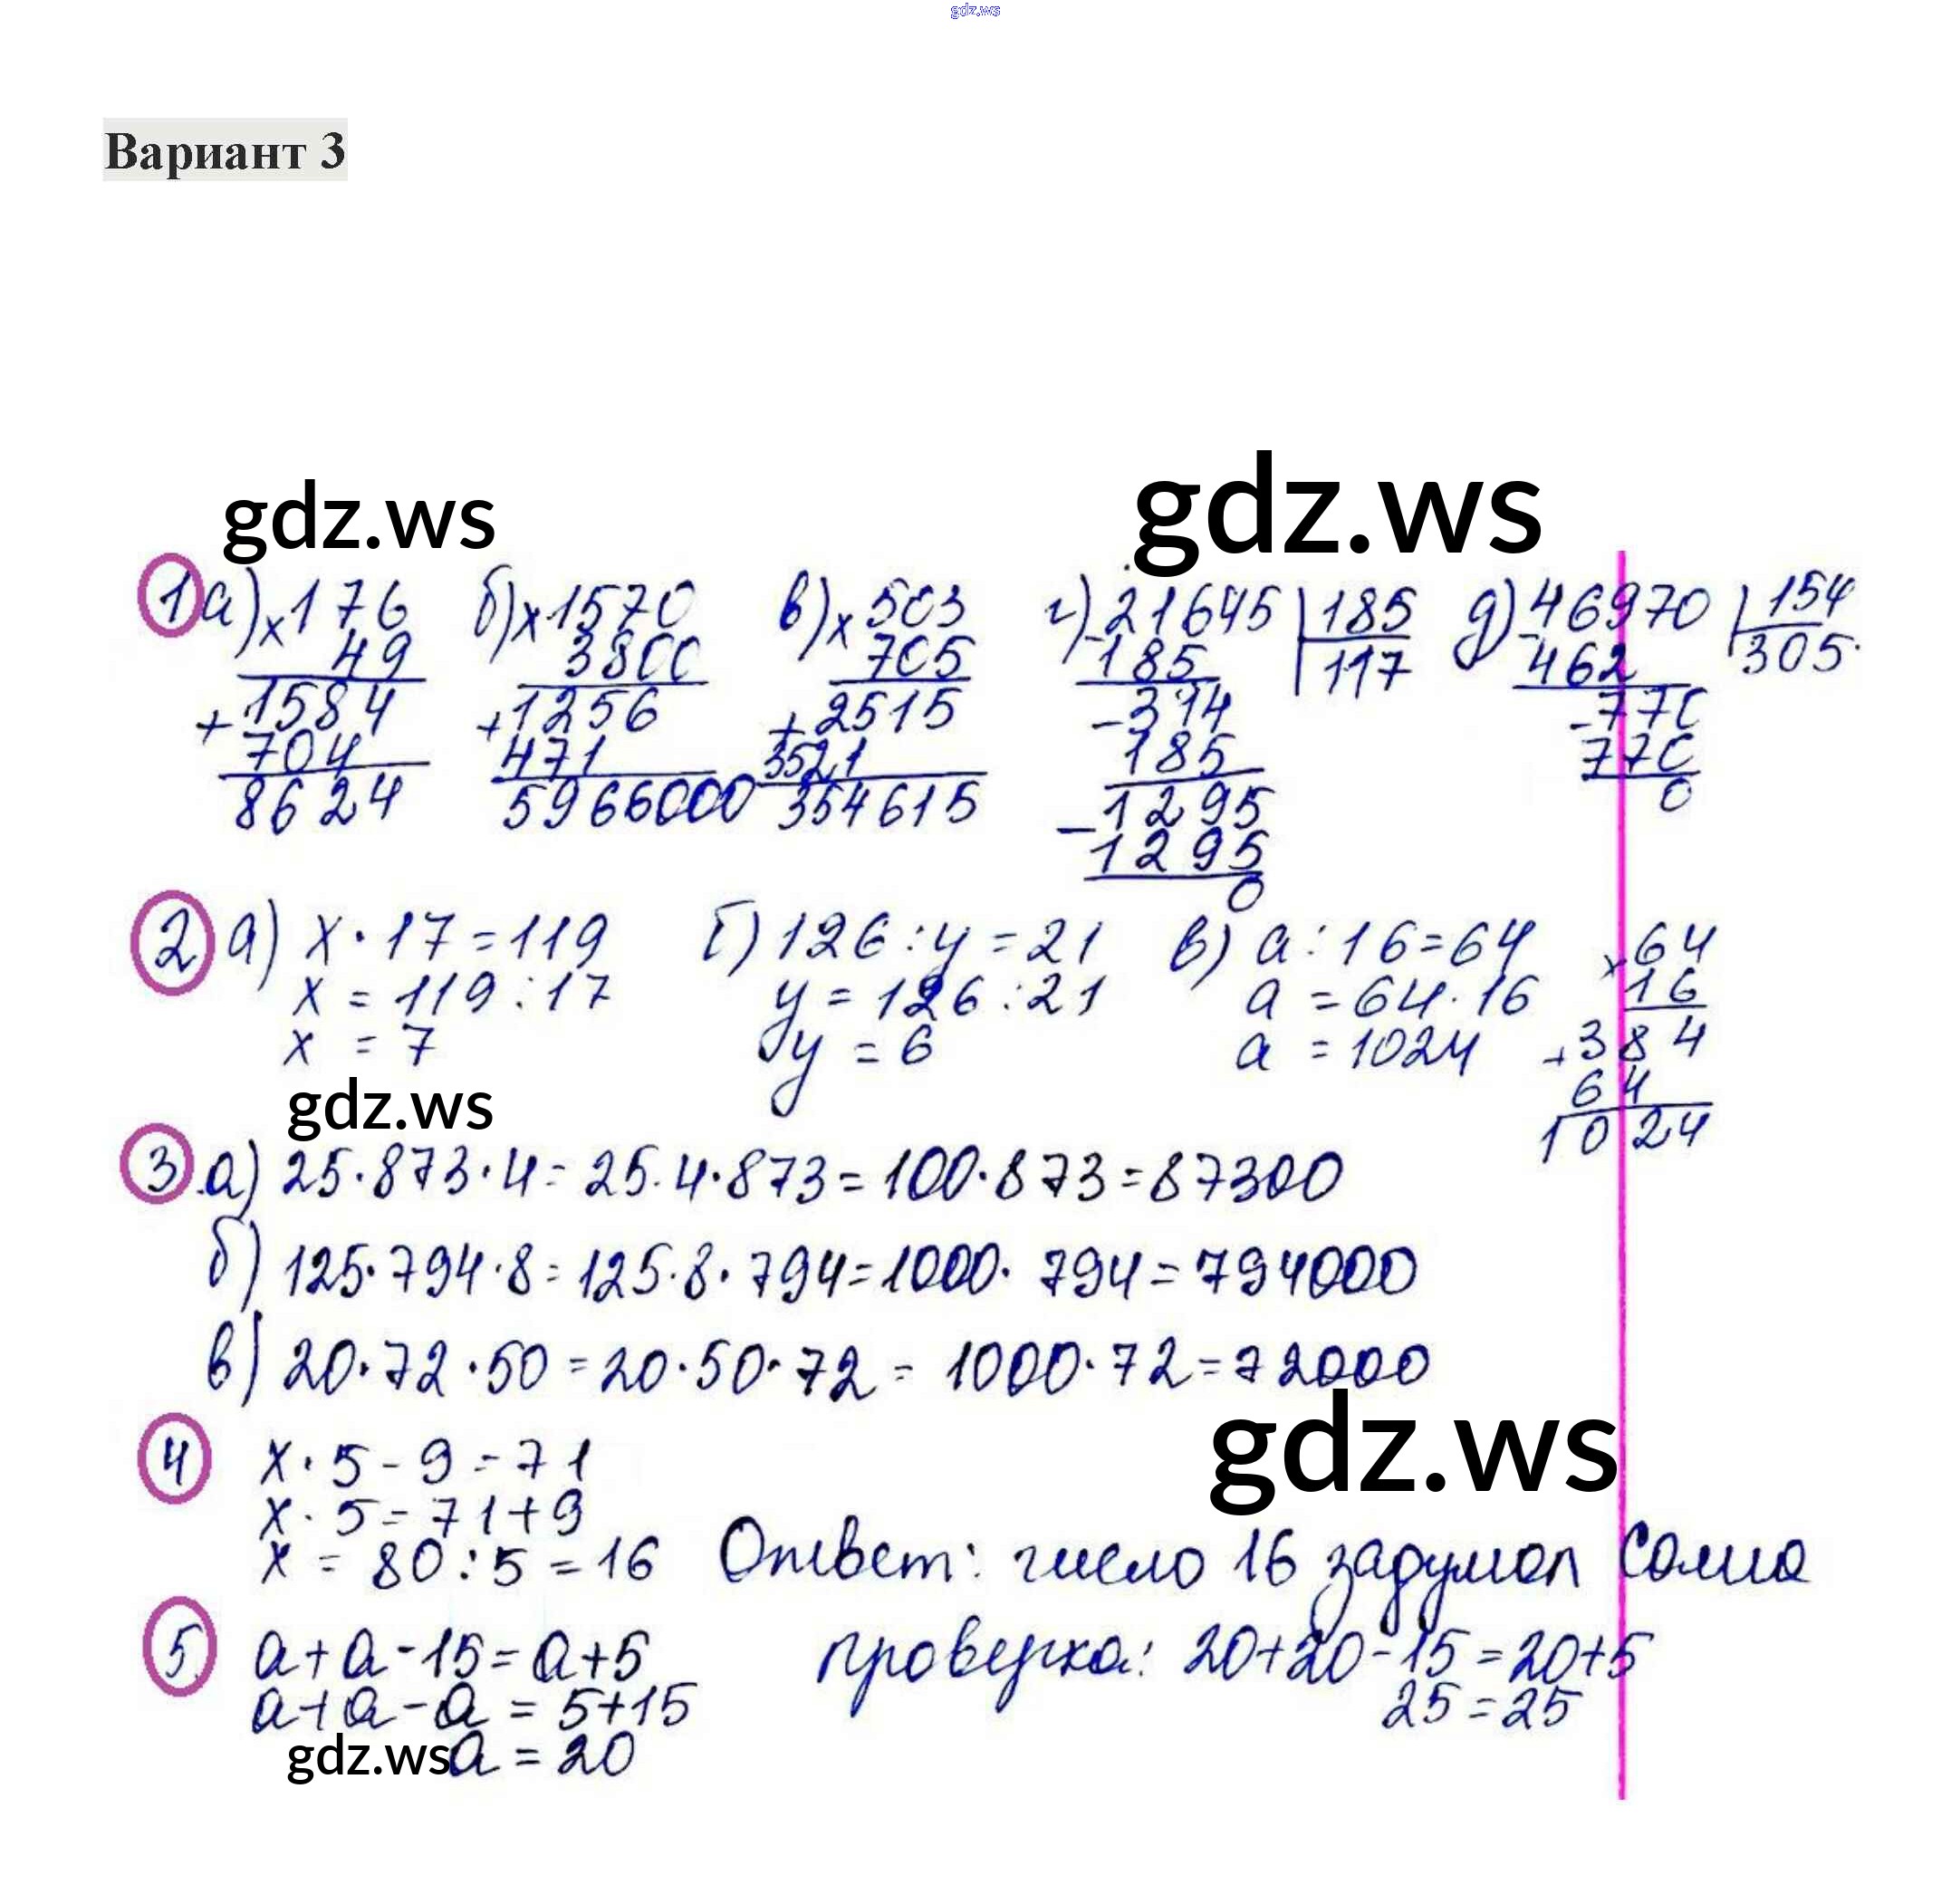 gdz.ws
Вариант 3
gdz.ws
gdz.ws
1 а) × 176 б) × 1570 в) × 503 г) 21645 | 185 д) 46970 | 154
49 3800 705 - 185 117 - 462 305
1584 1256 2515 - 314 - 770
+ 704 + 471 + 3521 185 770
8624 5966000 354615 - 1295 0
1295
0
2 а) x · 17 = 119 б) 126 : y = 21 в) a : 16 = 64 × 64
x = 119 : 17 y = 126 : 21 a = 64 · 16 16
x = 7 y = 6 a = 1024 + 384
64
1024
gdz.ws
3. а) 25 · 873 · 4 = 25 · 4 · 873 = 100 · 873 = 87300
б) 125 · 794 · 8 = 125 · 8 · 794 = 1000 · 794 = 794000
в) 20 · 72 · 50 = 20 · 50 · 72 = 1000 · 72 = 72000
gdz.ws
4 x · 5 - 9 = 71
x · 5 = 71 + 9
x = 80 : 5 = 16 Ответ: число 16 задумал Сома
5 a + a - 15 = a + 5 проверка: 20 + 20 - 15 = 20 + 5
a + a - a = 5 + 15 25 = 25
gdz.ws a = 20